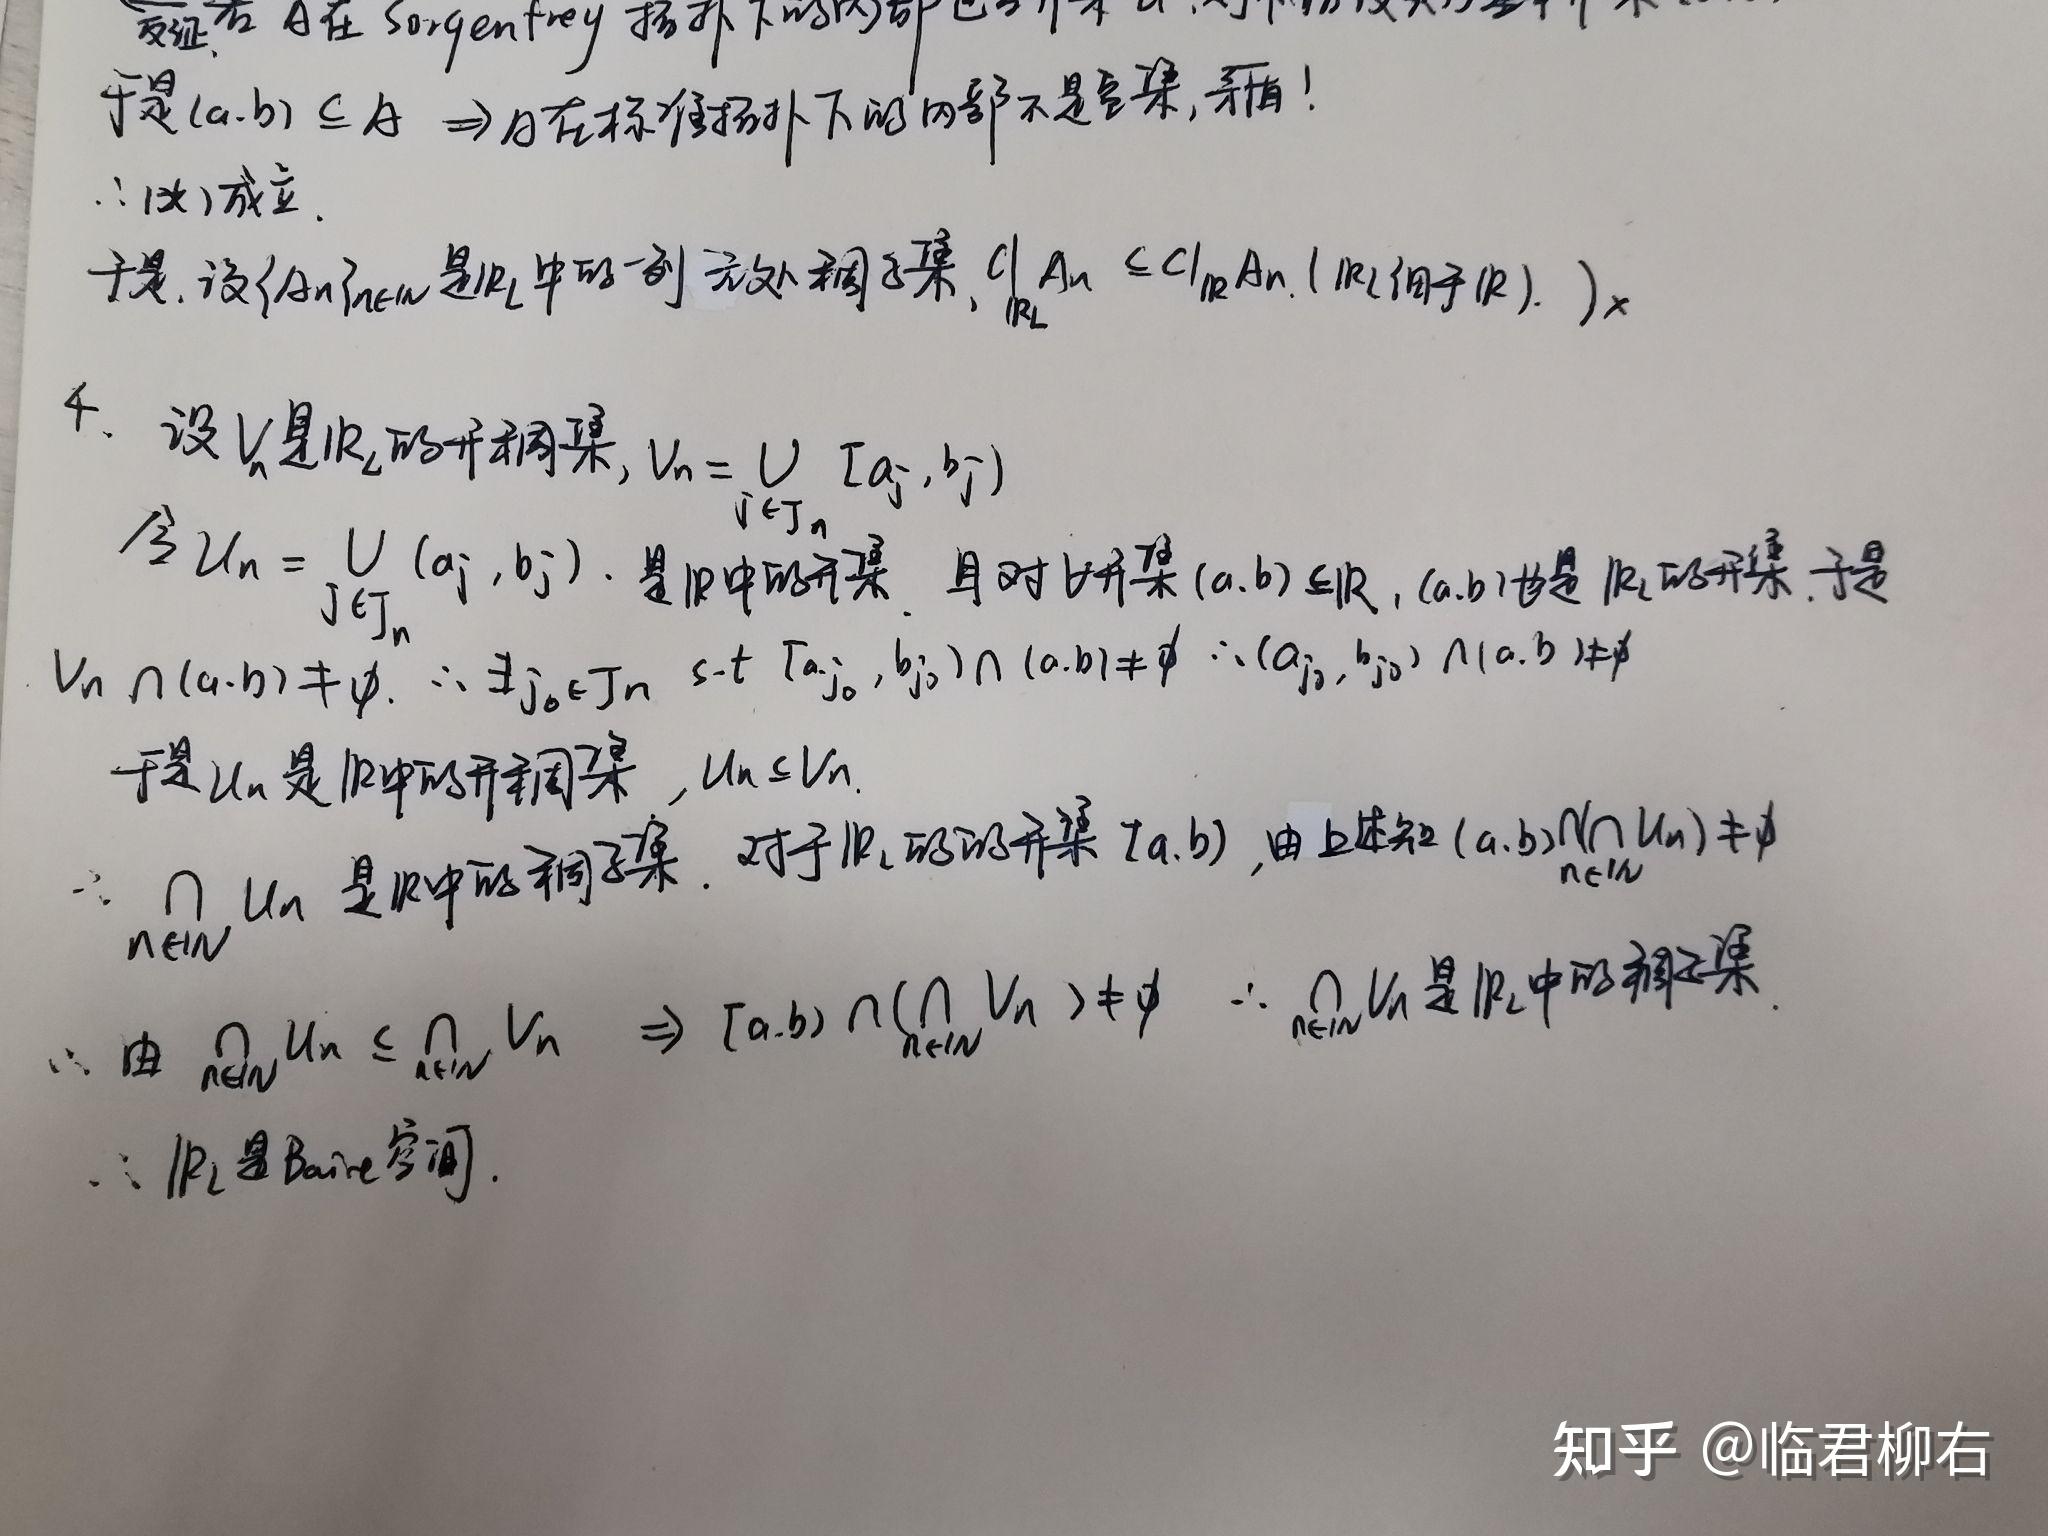 反证.若 A在 Sorgenfrey 拓扑下的内部包含开集 U,
于是(a.b) ⊆ A ⇒ A在标准拓扑下的内部不是空集,矛盾!
∴ (*)成立.
于是.设{An}n∈ℕ是ℝL中的一列无处稠子集, Cl_ℝL An ⊆ Cl_ℝ An. (ℝL细于ℝ). )×
4. 设Vn是ℝL的开稠集, Vn = ∪_{j∈Jn} [aj, bj)
令 Un = ∪_{j∈Jn} (aj, bj). 是ℝ中的开集. 且对∀开集(a.b)⊆ℝ, (a.b)也是ℝL的开集.于是
Vn ∩ (a.b) ≠ ∅. ∴ ∃j0∈Jn s.t [aj0, bj0) ∩ (a.b) ≠ ∅ ∴ (aj0, bj0) ∩ (a.b) ≠ ∅
于是Un是ℝ中的开稠集, Un ⊆ Vn.
∴ ∩_{n∈ℕ} Un 是ℝ中的稠子集. 对于ℝL的的开集 [a.b), 由上述知 (a.b)∩(∩_{n∈ℕ} Un) ≠ ∅
∴ 由 ∩_{n∈ℕ} Un ⊆ ∩_{n∈ℕ} Vn ⇒ [a.b) ∩ (∩_{n∈ℕ} Vn) ≠ ∅ ∴ ∩_{n∈ℕ} Vn是ℝL中的稠子集.
∴ ℝL是Baire空间.
知乎 @临君柳右